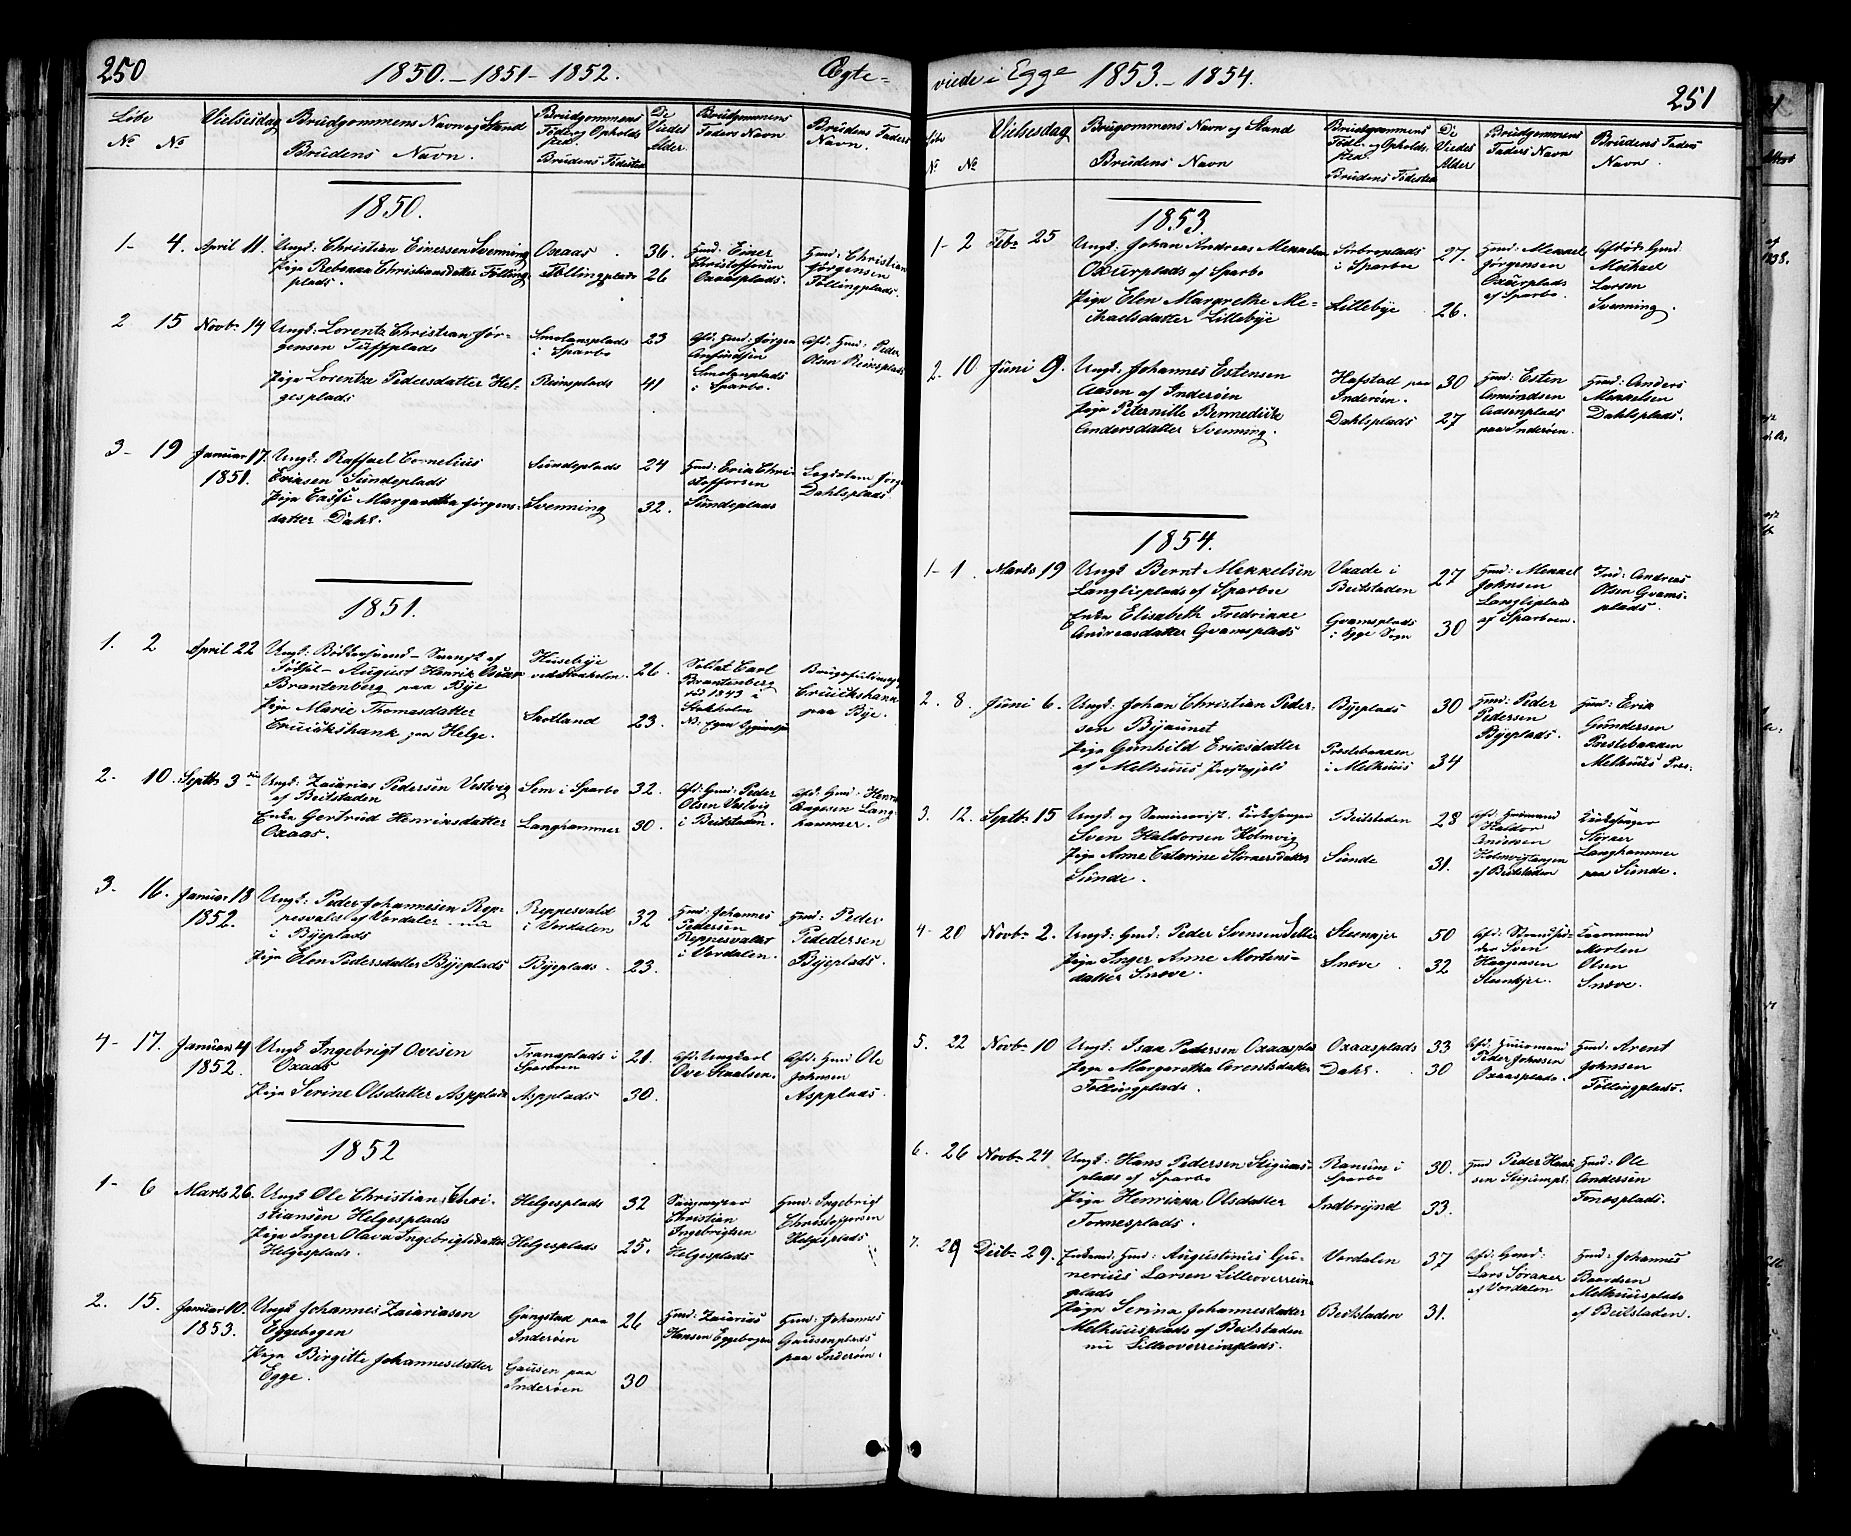 250
1850.-1851-1852.
Ægte-
Löbe
№ №
Vielsesdag
Brudgommens Navn og Stand
Brudens Navn.
Brudgommens
Föde og Opholds
sted.
Brudens Födested
De
Viedes
Alder.
Brudgommens
Faders Navn
Brudens Faders
Navn.
1850.
1- 4. April 11.
Ungk: Christian Einersen Svenning
Pige Rebekka Christiansdatter Fölling-
plads.
Oxaas
Föllingplads
36.
26
Hmd: Einer
Christoffersen
Oxaasplads.
Hmd: Christian
Jörgensen
Föllingplads.
2 15 Novbr 14
Ungk: Lorents Christian Jör-
gensen Tuffplads
Pige Lorentza Pedersdatter Hel-
gesplads
Smolansplads
i Sparbo
Reinsplads
23
41
Afd: Hmd: Jörgen
Smolanplads
i Sparbo.
Afd: Hmd: Peder
Olsen Reinsplads
3- 19 Januar 17.
1851.
Ungk: Raffael Cornelius
Eriksen Sundeplads
Pige Margaretha Jörgens-
datter Dahl.
Sundeplads
Svenning
24
32.
Hmd: Erik Chri-
stoffersen
Sundeplads
Dahlsplads
1851.
1. 2 April 22
Ungk: Bödkersvend - Svensk af
Födsel - August Henrik Oscar
Brantenberg paa Bye
Pige Marie Thomasdatter
Cruickshank paa Helge.
Husebye
ved Stokholm.
Skotland
26.
23.
Soldat Carl
Brantenberg
död 1843 i
Stokholm
Cruickshank
paa Bye.
2. 10. Septbr 3die
Ungk: Zacarias Pedersen Vestvig
af Beitstaden
Enke Gertrud Henriksdatter
Oxaas.
Sem i Sparbo
Langhammer
32.
30.
Afd: Hmd: Peder
Olsen Vestvig
i Beitstaden.
Afd: Hmd: Henrik
Aagesen Lang-
hammer.
3. 16. Januar 18
1852.
Ungk: Peder Johannesen Rep-
pesvald af Verdalen - nu
i Byeplads
Pige Elen Pedersdatter Byeplads
Reppesvald
i Verdalen
Byeplads.
32
23.
Hmd: Johannes
Pedersen
Reppesvaldet
i Verdalen.
Hmd: Peder
Pedersen
Byeplads.
4- 17. Januar 4
1852.
Ungk Ingebrigt Ovesen
Oxaas
Pige Serine Olsdatter Aspplads
Tranaplads i
Sparboen
Aspplads
21.
30.
Afd: Ungkarl
Ove Staalsen.
Afd: Hmd Ole
Johnsen
Aspplads.
1852
1- 6 Marts 26.
Ungk Ole Christian Chri-
stiansen Helgesplads
Pige Inger Olava Ingebrigtsdatter
Helgesplads.
Helgesplads
Helgesplads
32
25.
Sagmester
Christian
Ingebrigtsen
Helgesplads
Hmd: Ingebrigt
Christoffersen
Helgesplads
2. 15. Januar 10.
1853.
Ungk Johannes Zacariasen
Eggebogen
Pige Birgitte Johannesdatter
Egge.
Gangstad paa
Inderöen
Gausen paa
Inderöen
26
30
Hmd: Zacarias
Hansen Eggebogen
Hmd: Johannes
Gausenplads
paa Inderöen.
viede i Egge 1853.-1854.
251
Löbe
№ №
Vielsesdag
Brugommens Navn og Stand
Brudens Navn
Brudgommens
Föde- og Opholds-
sted.
Brudens Födested
De
Viedes
Alder
Brudgommens
Faders Navn
Brudens Faders
Navn.
1853
1- 2 Febr 25
Ungk: Johan Andreas Mekkelsen
Oxurplads af Sparbo
Pige Elen Margrethe Me-
ikaelsdatter Lillebye
i Sparboe
Lillebye
27.
26.
Hmd: Mekkel
Jörgensen
Oxurplads
af Sparbo.
Afdöde Hmd.
Meikael
Larsen
Svenning.
2. 10 Juni 9.
Ungk: Johannes Estensen
Aasen af Inderöen
Pige Peternille Bennedikte
Andersdatter Svenning.
Hafstad paa
Inderöen.
Dahlsplads
30
27
Hmd: Esten
Amundsen
Aasenplads
paa Inderöen.
Hmd: Anders
Mekkelsen
Dahlsplads.
1854.
1- 1. Marts 19
Ungk Bernt Mekkelsen
Langlieplads af Sparboe
Enke Elisabeth Fredrikke
Andreasdatter Gvamsplads
Vaade i
Beitstaden
Gvamsplads
i Egge Sogn
27
30
Hmd: Mekkel
Johnsen
Langlieplads
af Sparboen.
Ind: Andreas
Olsen Gvams-
plads.
2. 8. Juni 6.
Ungk: Johan Christian Peder-
sen Byeaunet
Pige Gunhild Eriksdatter
af Melhuus Prestegjeld
Byeplads
Prestebakken
i Melhuus
30
34
Hmd: Peder
Pedersen
Byeplads.
Hmd: Erik
Gundersen
Prestebakken
Melhuus Pres:
3. 12. Septbr 15
Ungk. og Seminarist. Kirkesanger
Sven Haldorsen Holmvig
Pige Anne Catarine Störkersdatter
Sunde.
Beitstaden
Sunde
28
31.
Afd: Huusmand
Haldor
Andersen
Holmvigtangen
af Beitstaden
Kirkesanger
Störker
Langhammer
paa Sunde.
4- 20 Novbr 2.
Ungk: Hmd: Peder Svensen Sætter
Pige Inger Anne Mortens-
datter Snöve.
Steenkjer
Snöve.
50
32
Afd: Strandsid-
der Sven
Haagensen
Steenkjer.
Morten
Olsen
Snöve.
5. 22 Novbr 10
Ungk: Isak Pedersen Oxaasplads
Pige Margaretha Arentsdatter
Föllingplads.
Oxaasplads
Dahl.
33
30
Afd: Huusmand
Peder Johnsen
Oxaasplads.
Hmd: Arent
Johnsen
Föllingplads.
6. 26 Novbr 24
Ungk: Hans Pedersen Stiguas-
plads af Sparbo
Pige Henrikka Olsdatter
Tornesplads.
Ranum i
Sparbo
Indbrynd
30.
33.
Hmd Peder Han-
sen
Hmd: Ole
Andersen
7. 29 Decbr 29.
Enkemd. Hmd: Augustinus Gu-
nerius Larsen Lilleoverrein-
plads
Pige Serina Johannesdatter
Melhuusplads af Beitstaden
nu Lilleoverreinplads.
Verdalen
Beitstaden
37
31.
Afd: Hmd:
Lars Söraker
af Verdalen
Hmd: Johannes
Baardsen
Melhuusplads
af Beitstaden.